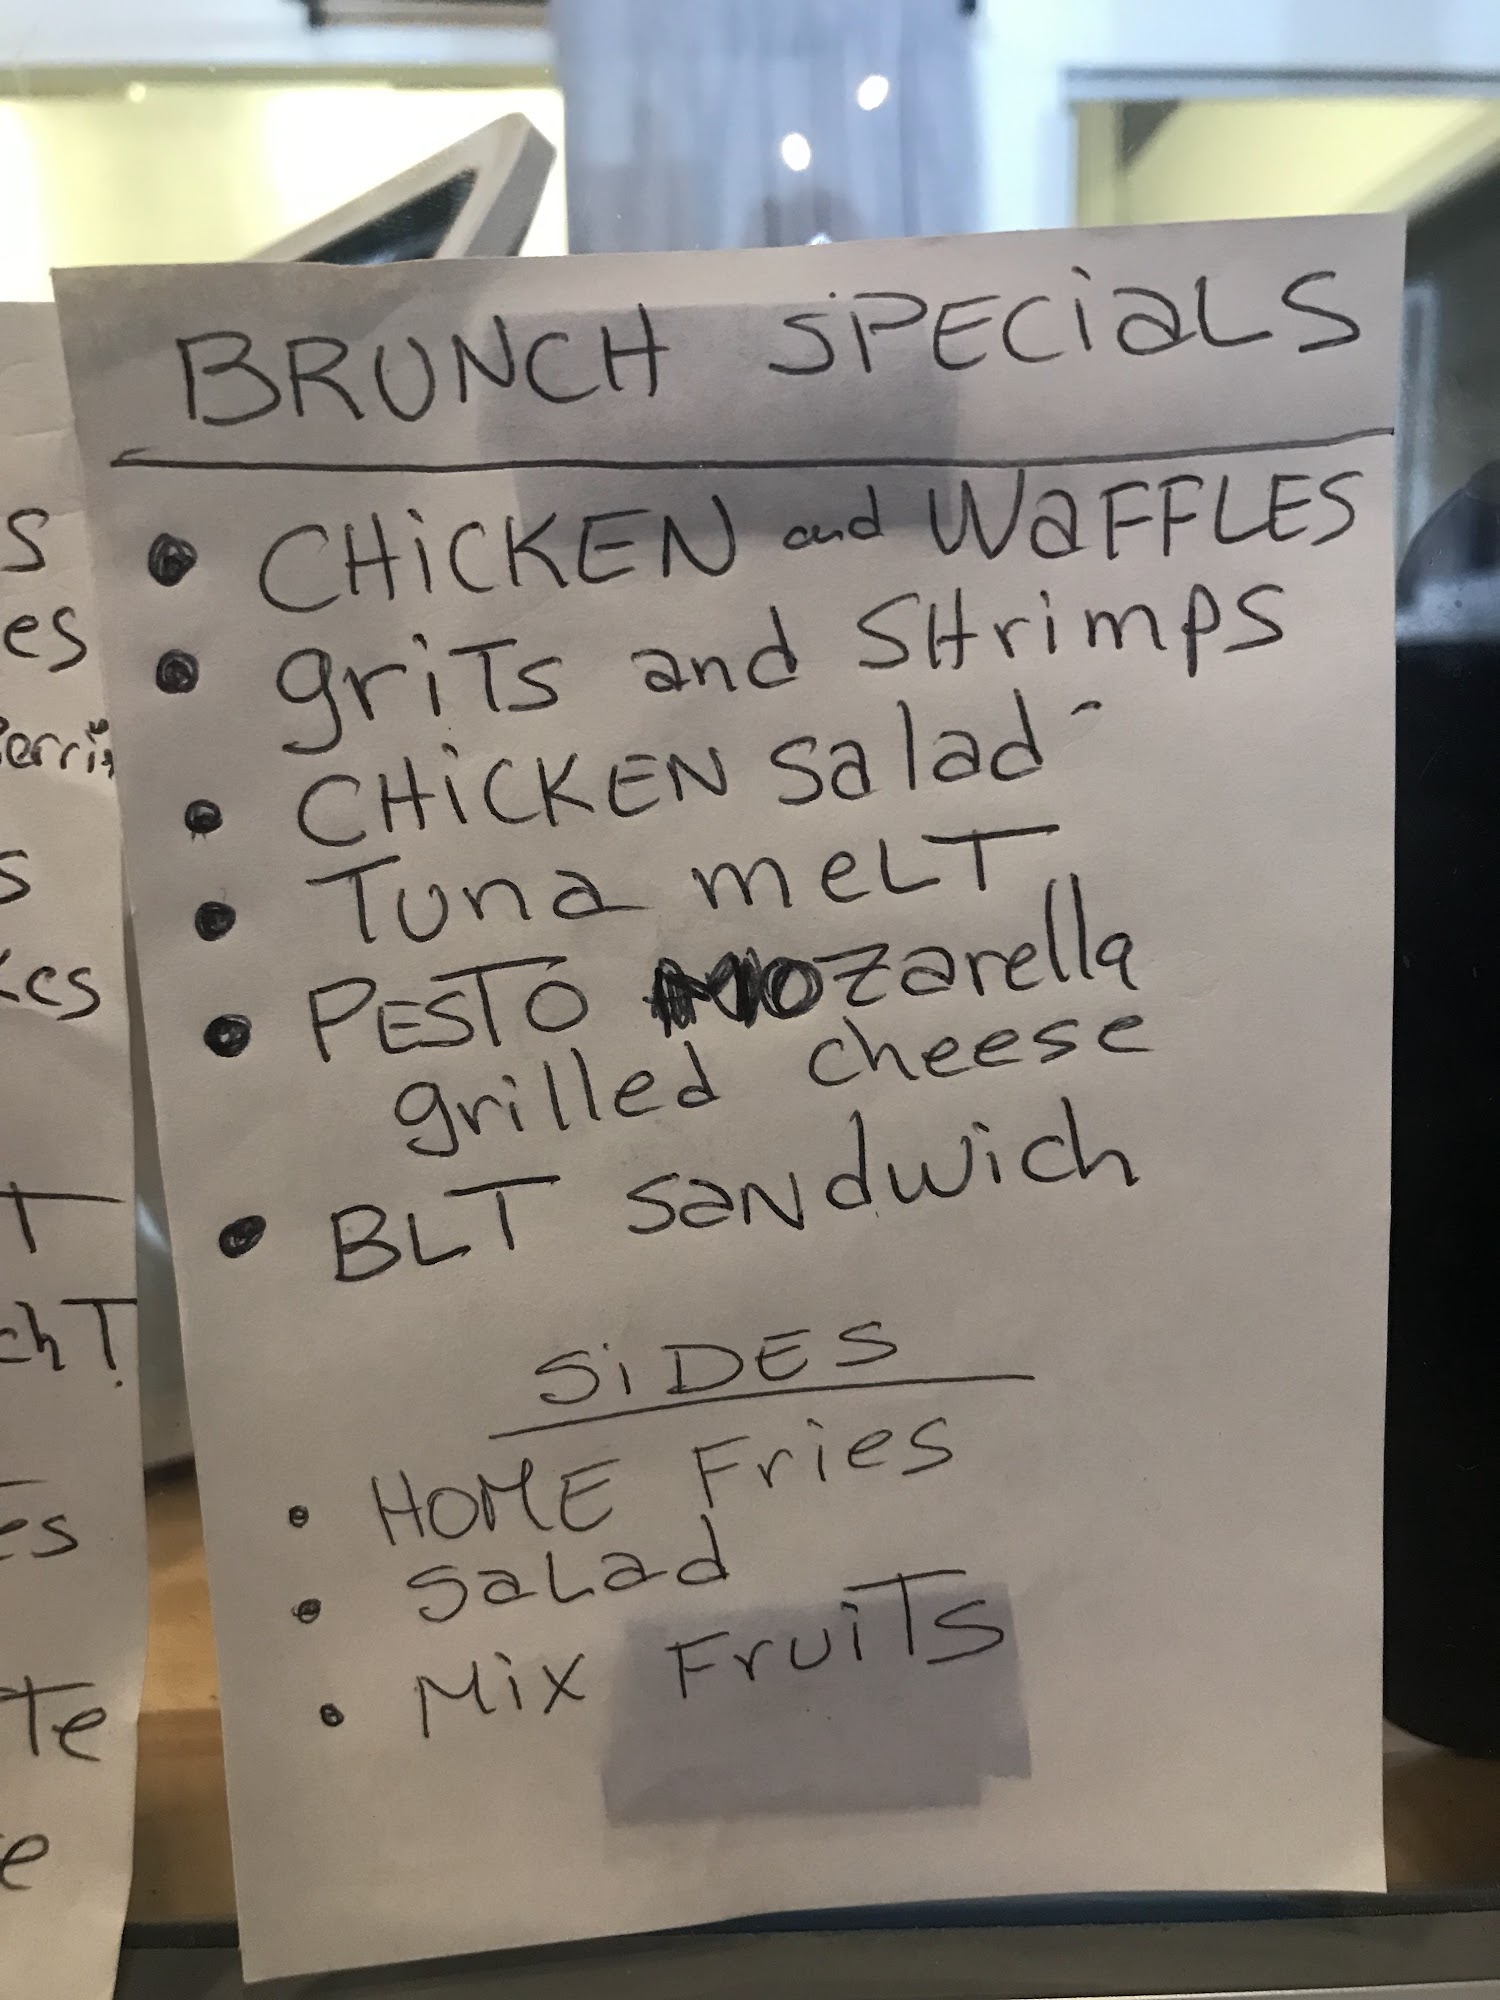 BRUNCH SPECiaLS
• CHiCKEN and WaFFLES
• griTs and SHrimps
• CHiCKEN Salad -
• Tuna meLT
• PESTO MOzarella
grilled cheese
• BLT SaNdwich
SiDES
• HOME Fries
• SaLad
• Mix FruiTs
s
es
s
T
chT!
es
Te
e